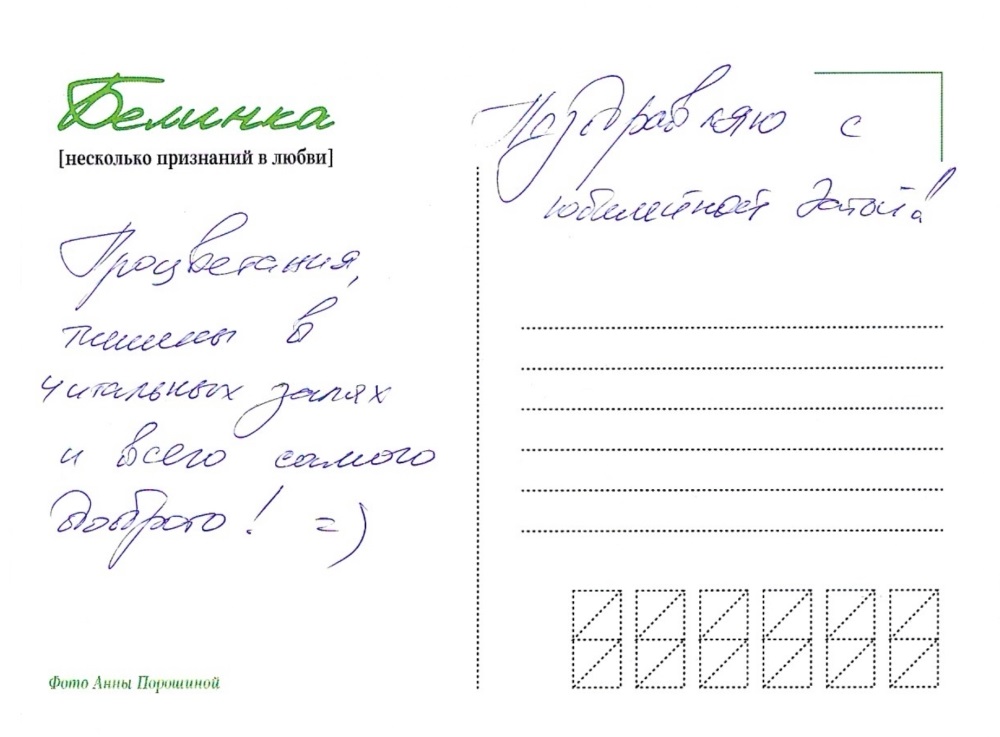 Белинка
[несколько признаний в любви]
Поздравляю с
юбилейной датой!
Процветания,
тишины в
читальных залах
и всего самого
доброго! =)
Фото Анны Порошиной